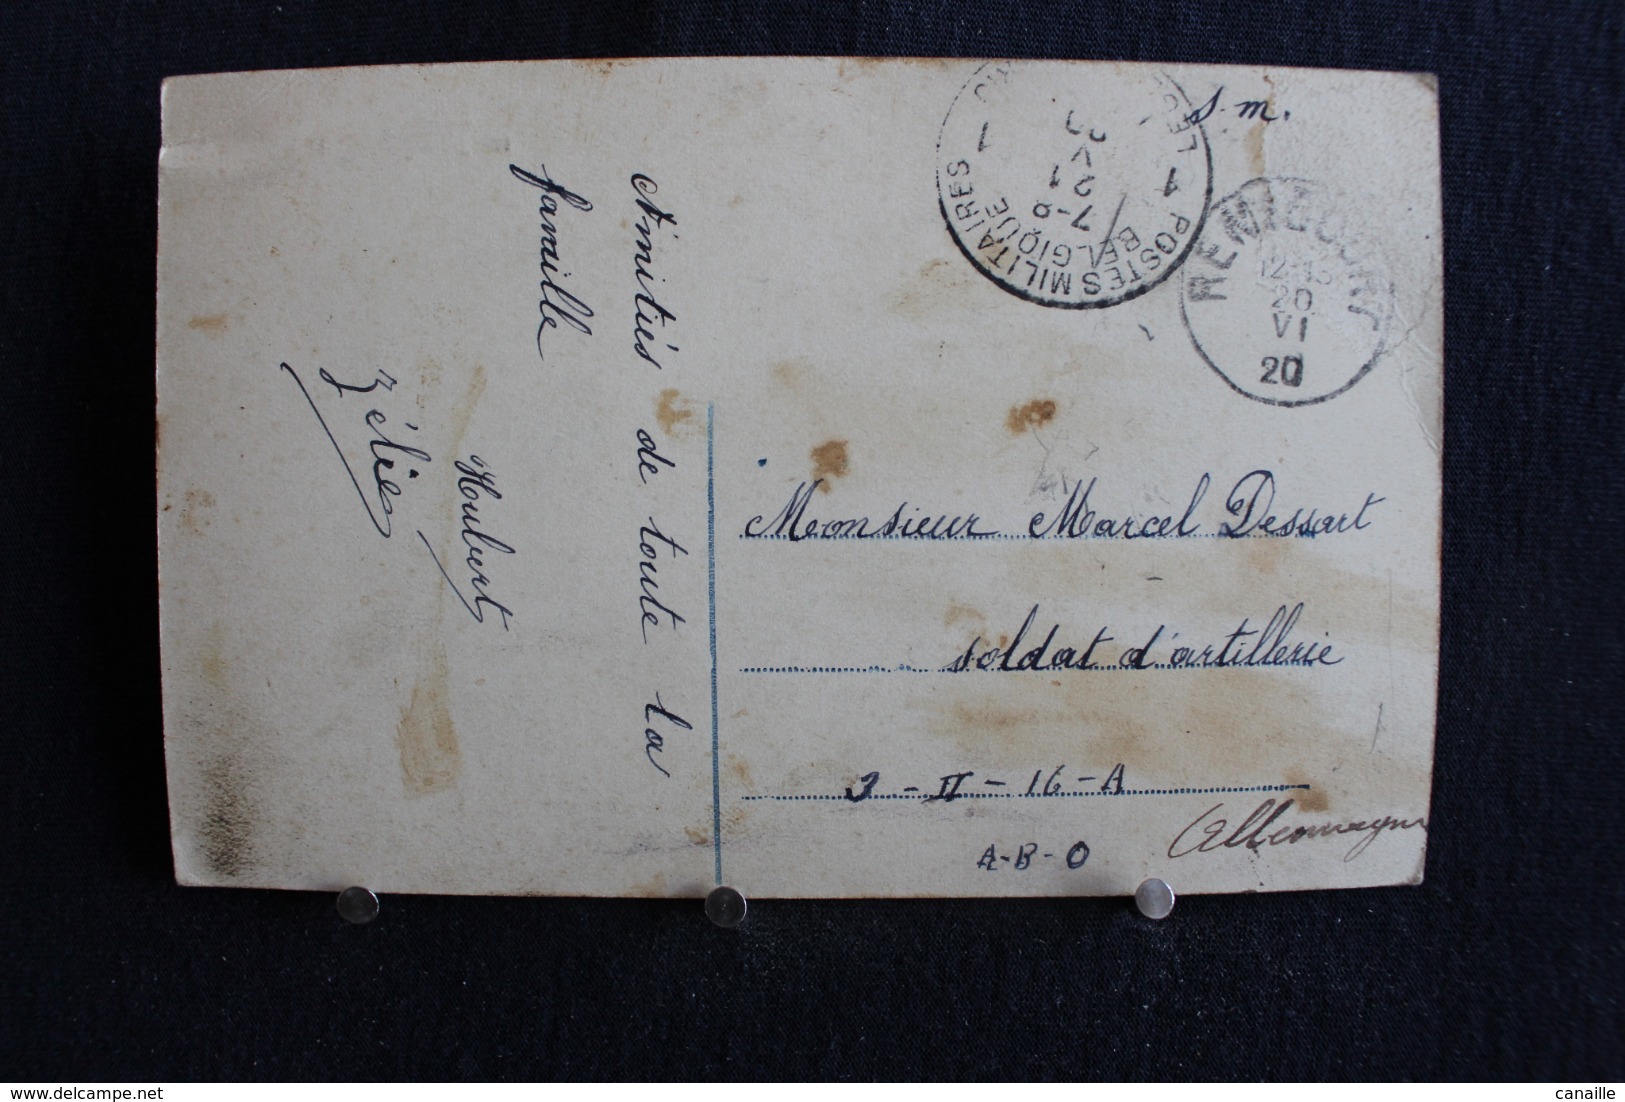 Amitiés de toute la
famille
Hubert
Zélie
s.m.
POSTES MILITAIRES
BELGIQUE
1 1
7-8
21
V
REMICOURT
20
VI
20
Monsieur Marcel Dessart
soldat d'artillerie
3 - II - 16 - A
A-B-O
Allemagne
delcampe.net
canaille